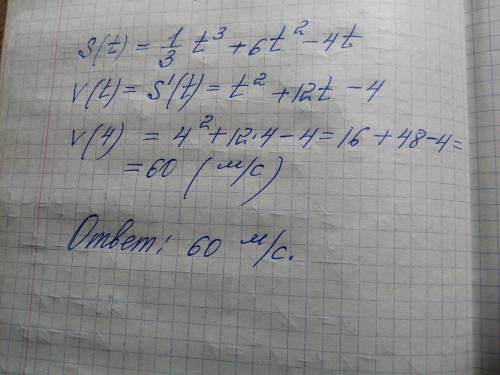 S(t) = 1/3 t³ + 6t² - 4t
v(t) = S'(t) = t² + 12t - 4
v(4) = 4² + 12·4 - 4 = 16 + 48 - 4 =
= 60 (м/с)
Ответ: 60 м/с.